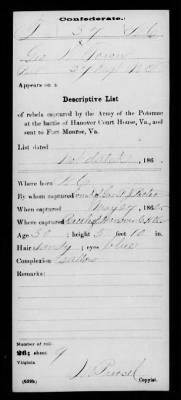 Confederate.
Geo
37
Appears on a
Descriptive List
of rebels captured by the Army of the Potomac
at the battle of Hanover Court House, Va., and
sent to Fort Monroe, Va.
List dated
Not dated, 186 .
Where born N. C.
By whom captured
When captured May 27, 1862.
Where captured Hanover C. H. Va
Age 30; height 5 feet 10 in.
Hair Sandy; eyes blue
Complexion Sallow
Remarks:
Number of roll:
26; sheet 9
Virginia
(639b) Copyist.